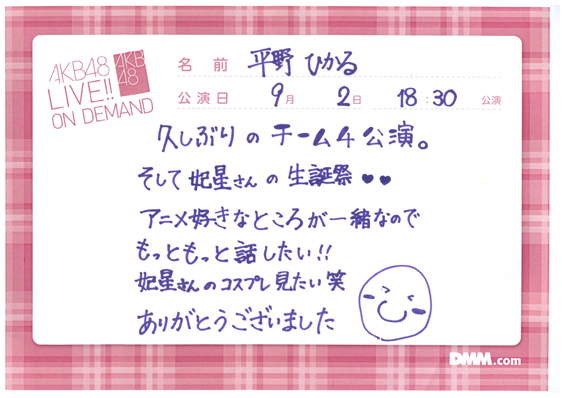 AKB48
LIVE!!
ON DEMAND
AKB
48
名前 平野 ひかる
公演日 9月 2日 18:30 公演
久しぶりのチーム4公演。
そして妃星さんの生誕祭♥♥
アニメ好きなところが一緒なので
もっともっと話したい!!
妃星さんのコスプレ見たい笑
ありがとうございました
DMM.com